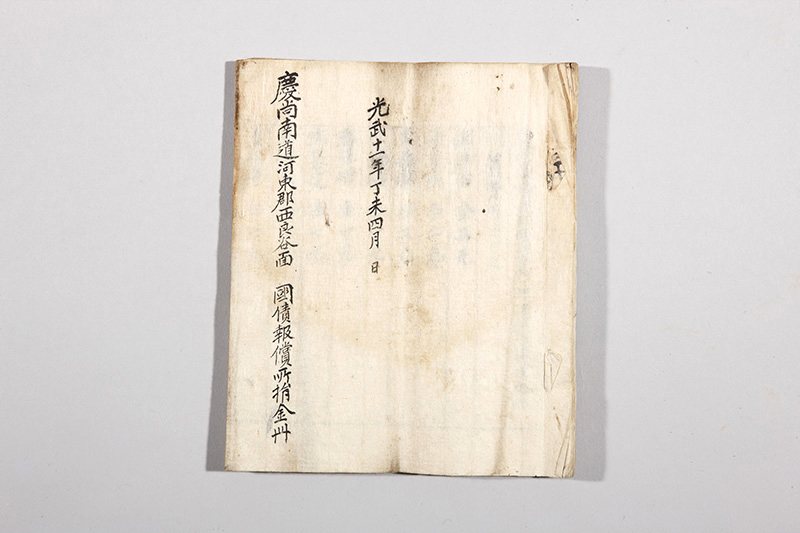 光武十一年丁未四月 日
慶尙南道河東郡西良谷面 國債報償所捐金冊